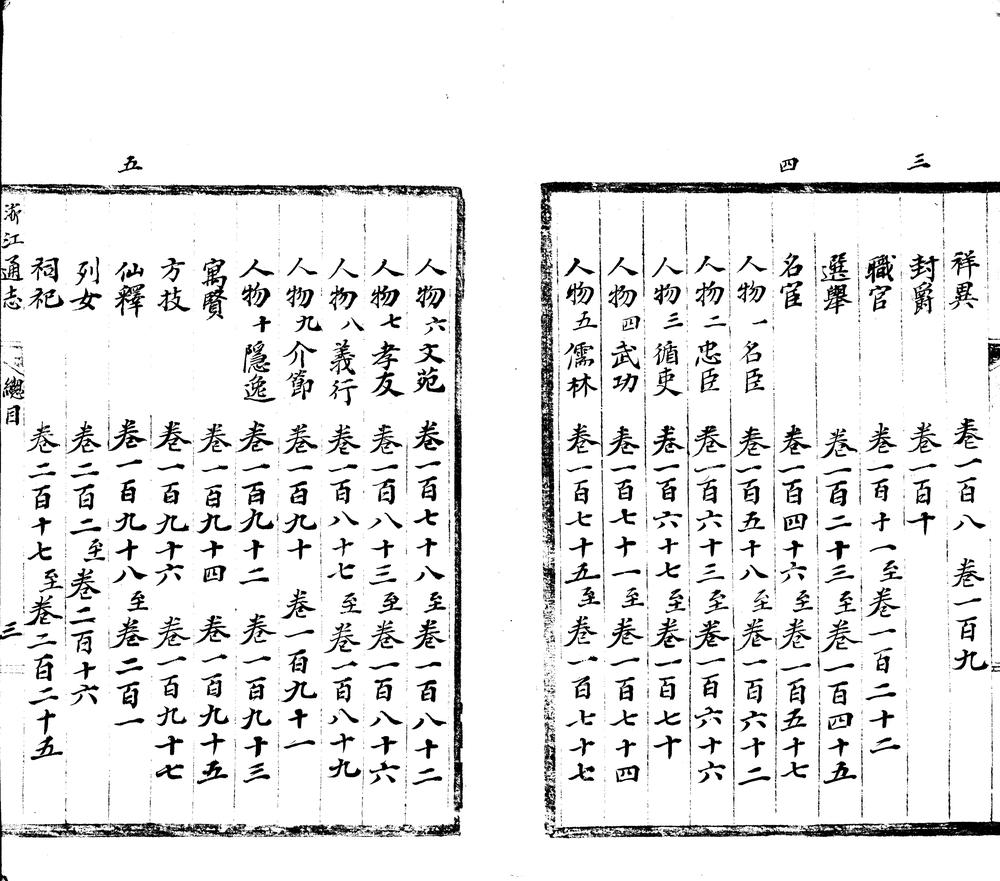 三
四
祥異 卷一百八 卷一百九
封爵 卷一百十
職官 卷一百十一至卷一百二十二
選舉 卷一百二十三至卷一百四十五
名宦 卷一百四十六至卷一百五十七
人物一名臣 卷一百五十八至卷一百六十二
人物二忠臣 卷一百六十三至卷一百六十六
人物三循吏 卷一百六十七至卷一百七十
人物四武功 卷一百七十一至卷一百七十四
人物五儒林 卷一百七十五至卷一百七十七
五
人物六文苑 卷一百七十八至卷一百八十二
人物七孝友 卷一百八十三至卷一百八十六
人物八義行 卷一百八十七至卷一百八十九
人物九介節 卷一百九十 卷一百九十一
人物十隱逸 卷一百九十二 卷一百九十三
寓賢 卷一百九十四 卷一百九十五
方技 卷一百九十六 卷一百九十七
仙釋 卷一百九十八至卷二百一
列女 卷二百二至卷二百十六
祠祀 卷二百十七至卷二百二十五
浙江通志 總目 三